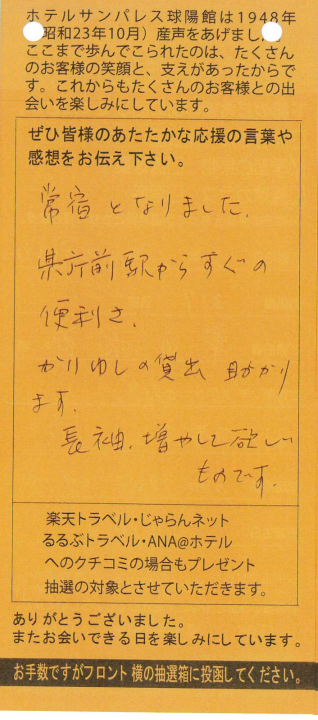 ホテルサンパレス球陽館は1948年
昭和23年10月）産声をあげまし
ここまで歩んでこられたのは、たくさん
のお客様の笑顔と、支えがあったからで
す。これからもたくさんのお客様との出
会いを楽しみにしています。
ぜひ皆様のあたたかな応援の言葉や
感想をお伝え下さい。
常宿となりました。
県庁前駅からすぐの
便利さ、
かりゆしの貸出 助かり
ます。
長袖、増やして欲しい
ものです。
楽天トラベル・じゃらんネット
るるぶトラベル・ANA@ホテル
へのクチコミの場合もプレゼント
抽選の対象とさせていただきます。
ありがとうございました。
またお会いできる日を楽しみにしています。
お手数ですがフロント横の抽選箱に投函してください。